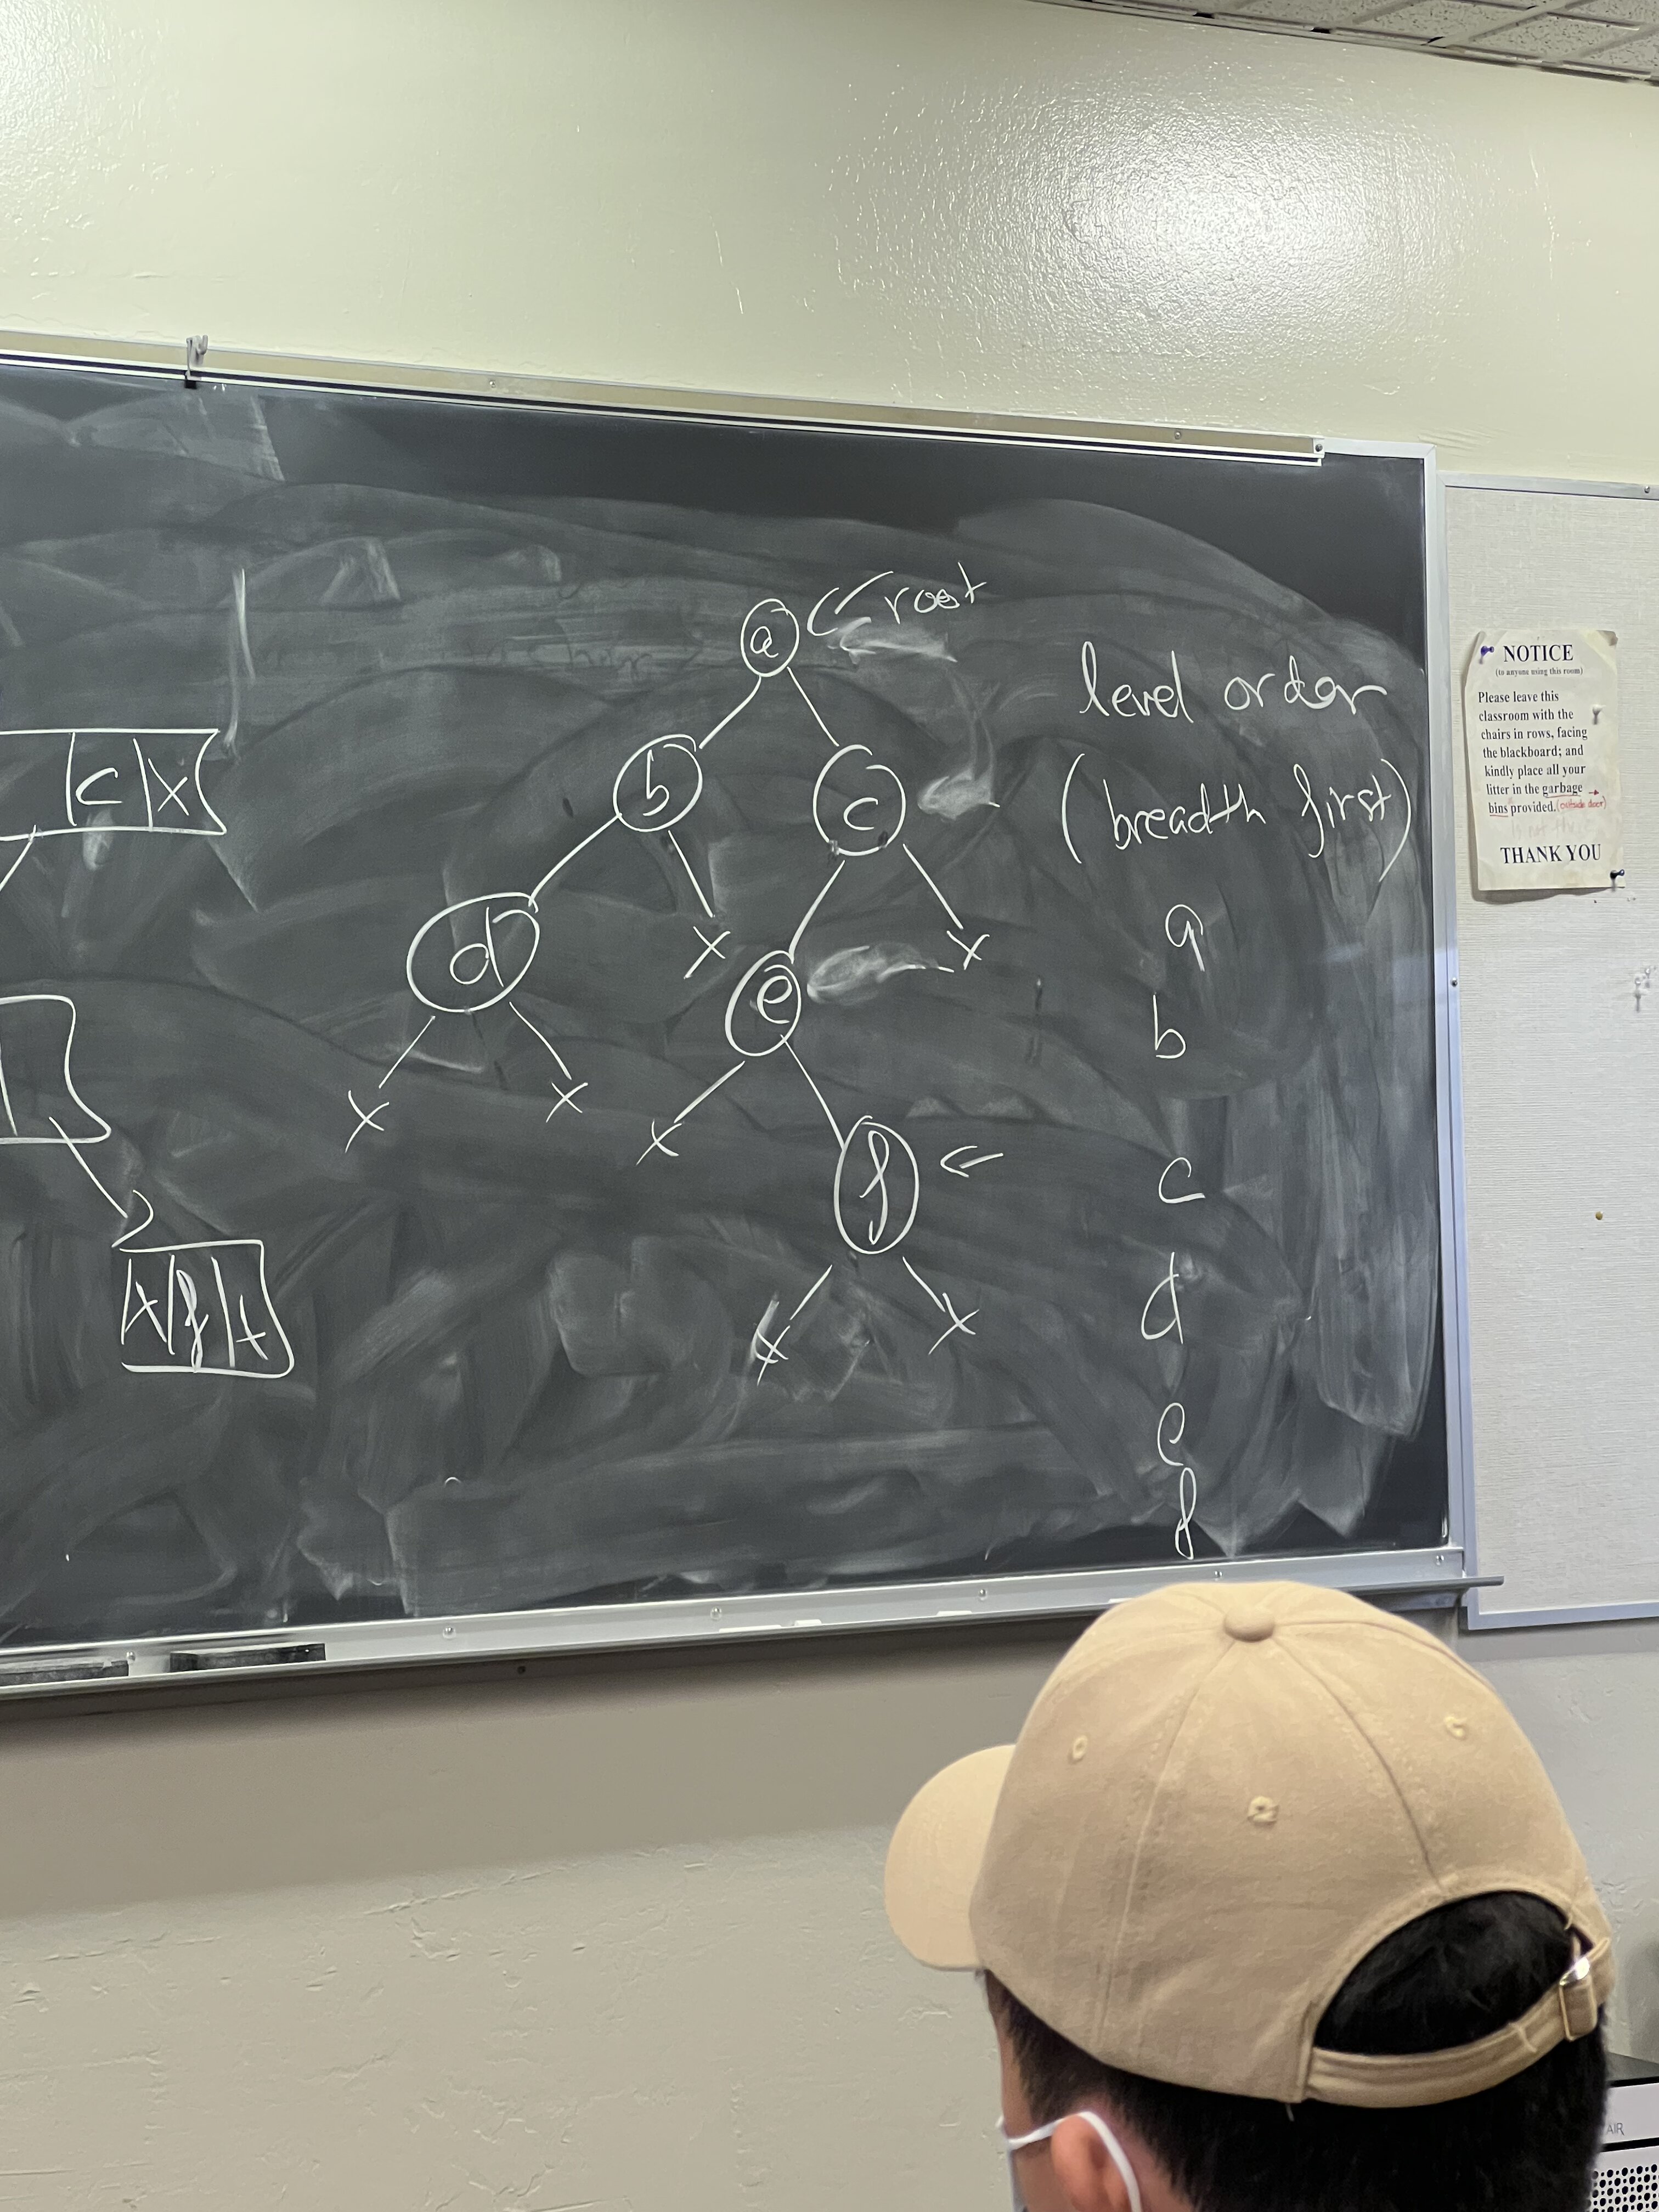 a root
b c
d x x
e
x x x f
x x
level order
(breadth first)
a
b
c
d
e
f
c x
x f x
NOTICE
(to anyone using this room)
Please leave this
classroom with the
chairs in rows, facing
the blackboard; and
kindly place all your
litter in the garbage
bins provided. (outside door)
THANK YOU
AIR